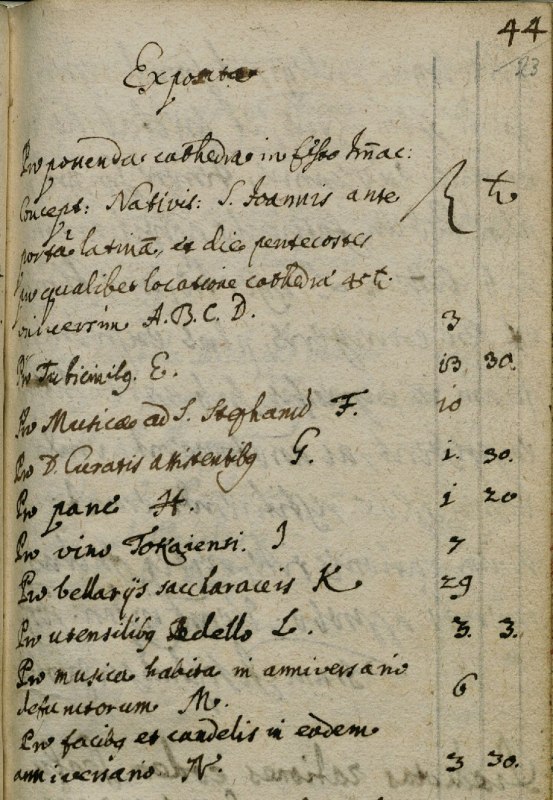 44
23
Exposita
Pro ponenda cathedra in festo Im̄ac:
Concept: Nativit: S. Joannis ante
portã latinã, et die pentecostes
pro qualibet locatione cathedrae 45 t:
universim A. B. C. D. 3
Pro Tubicinibq. E. 13 30.
Pro Musica ad S. Stephanũ F. 10
Pro D. Curatis assistentibq G. 1. 30.
Pro pane H. 1 20
Pro vino Tokaiensi. J 7
Pro bellarijs saccharaceis K 29
Pro utensilibq Bedello L. 3. 3.
Pro musica habita in anniversario
defunctorum M. 6
Pro facibq et candelis in eodem
anniversario N. 3 30.